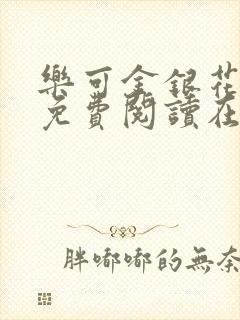 樂可金銀花
免費閱讀在
胖嘟嘟的無奈